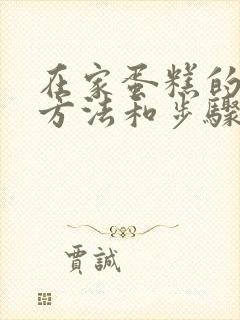 在家蛋糕的
方法和步骤
賈誠